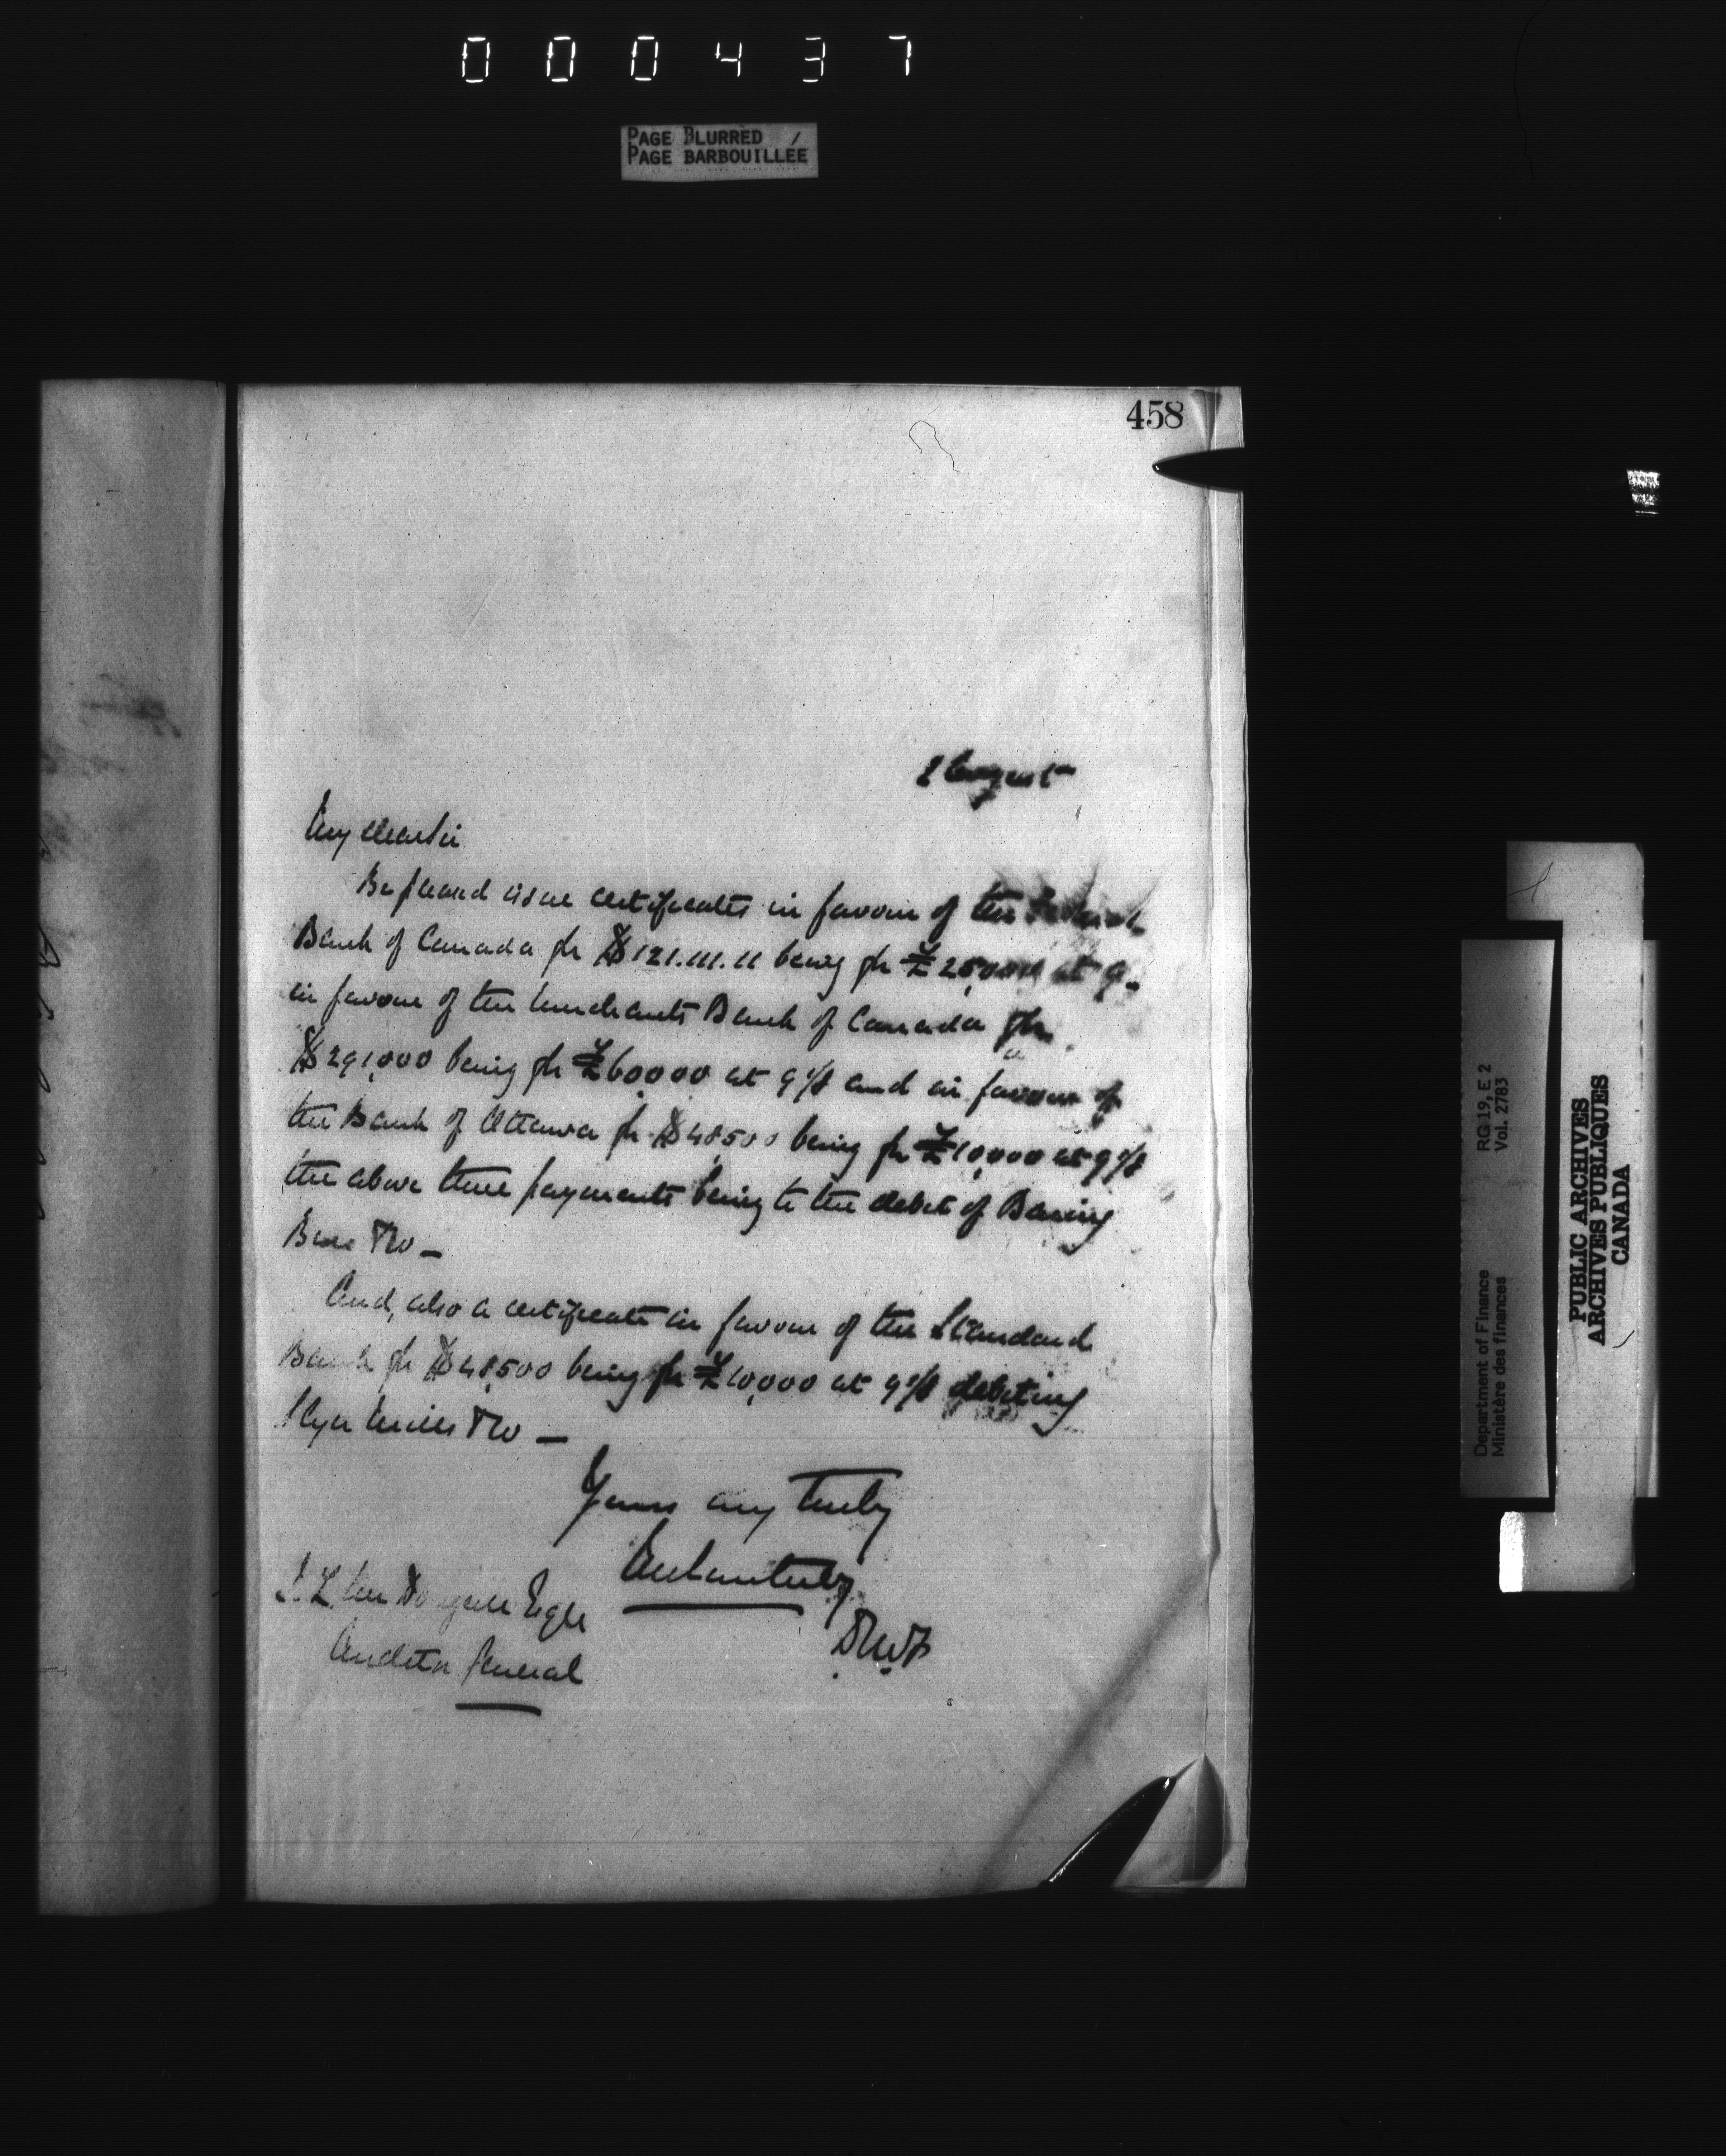 000437
PAGE BLURRED /
PAGE BARBOUILLÉE
458
August
My dear Sir
Be pleased issue certificates in favour of the Federal
Bank of Canada for $121.111.11 being for £25,000 at 9
in favour of the Merchants Bank of Canada for
$291,000 being for £60000 at 9% and in favour of
the Bank of Ottawa for $48,500 being for £10,000 at 9%
the above three payments being to the debit of Baring
Bros & Co —
And, also a certificate in favour of the Standard
Bank for $48,500 being for £10,000 at 9% debiting
Glyn Mills & Co —
Yours very truly
J. L. McDougall Esqre
Auditor General
RG 19, E 2
Vol. 2783
Department of Finance
Ministère des finances
PUBLIC ARCHIVES
ARCHIVES PUBLIQUES
CANADA